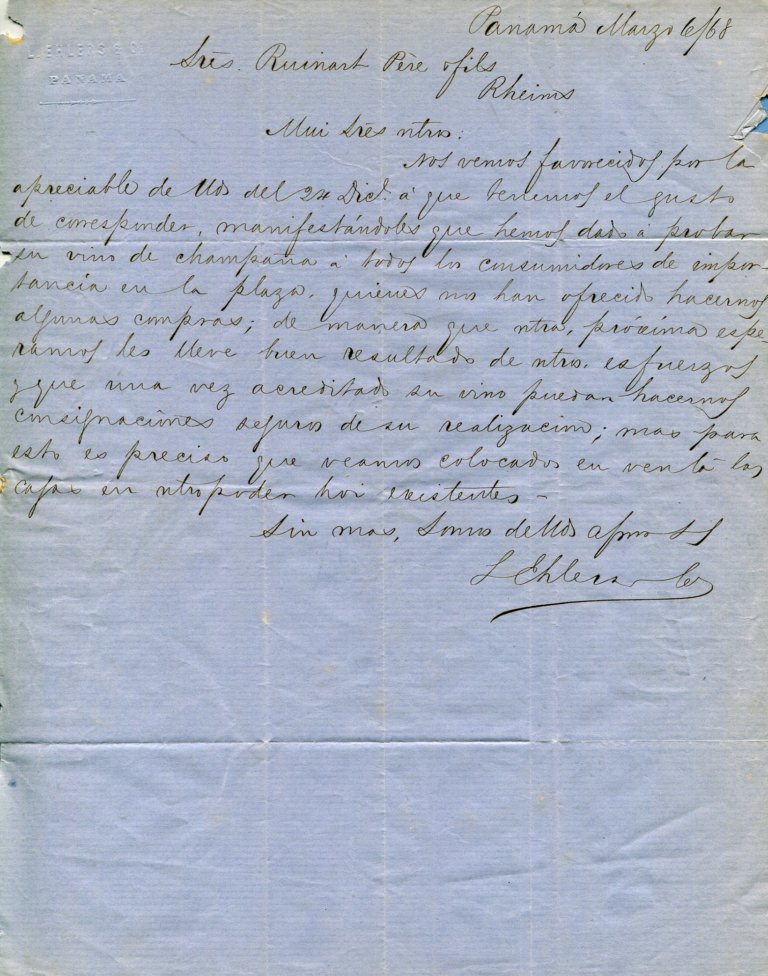 L. EHLERS & Cº
PANAMA
Panamá Marzo 6/68
Srēs. Ruinart Père & fils
Rheims
Mui Srēs ntros:
Nos vemos favorecidos por la
apreciable de Uds del 24 Dicb. á que tenemos el gusto
de corresponder, manifestándoles que hemos dado á probar
su vino de champaña á todos los consumidores de impor-
tancia en la plaza, quienes nos han ofrecido hacernos
algunas compras; de manera que ntra. próxima espe-
ramos les lleve buen resultado de ntros. esfuerzos
y que una vez acreditado su vino puedan hacernos
consignaciones seguros de su realizacion; mas para
esto es preciso que veamos colocados en venta las
cajas en ntro poder hoi existentes –
Sin mas, Somos de Uds afmos SS
L Ehlers & Co